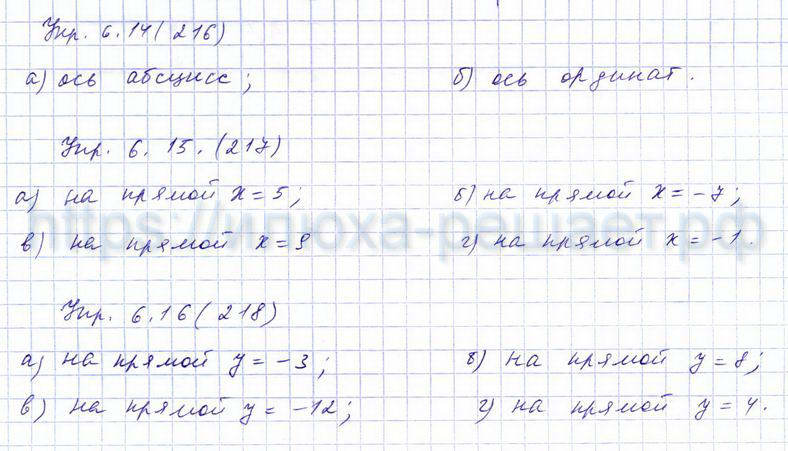 Упр. 6.14 (216)
а) ось абсцисс; б) ось ординат.
Упр. 6.15. (217)
а) на прямой x = 5; б) на прямой x = -7;
https://илюха-решает.рф
в) на прямой x = 9 г) на прямой x = -1.
Упр. 6.16 (218)
а) на прямой y = -3; б) на прямой y = 8;
в) на прямой y = -12; г) на прямой y = 4.